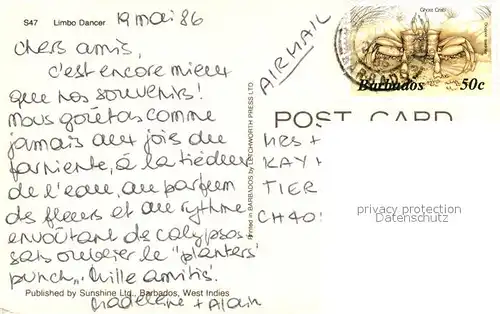 S47 Limbo Dancer
19 mai 86
Chers amis,
c'est encore mieux
que nos souvenirs!
Nous goûtons comme
jamais aux joies du
farniente, à la tiédeur
de l'eau, au parfum
de fleurs et au rythme
envoûtant de calypsos
sans oublier le "planters'
punch". Mille amitiés.
Madeleine + Alain
Published by Sunshine Ltd., Barbados, West Indies
Printed in BARBADOS by LETCHWORTH PRESS LTD.
AIRMAIL
Ghost Crab
Barbados 50c
POST CARD
MRS +
KAY
TIER
CH 40
privacy protection
Datenschutz